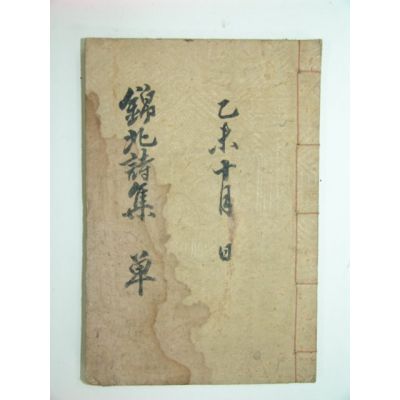 乙未十月 日
錦北詩集 单